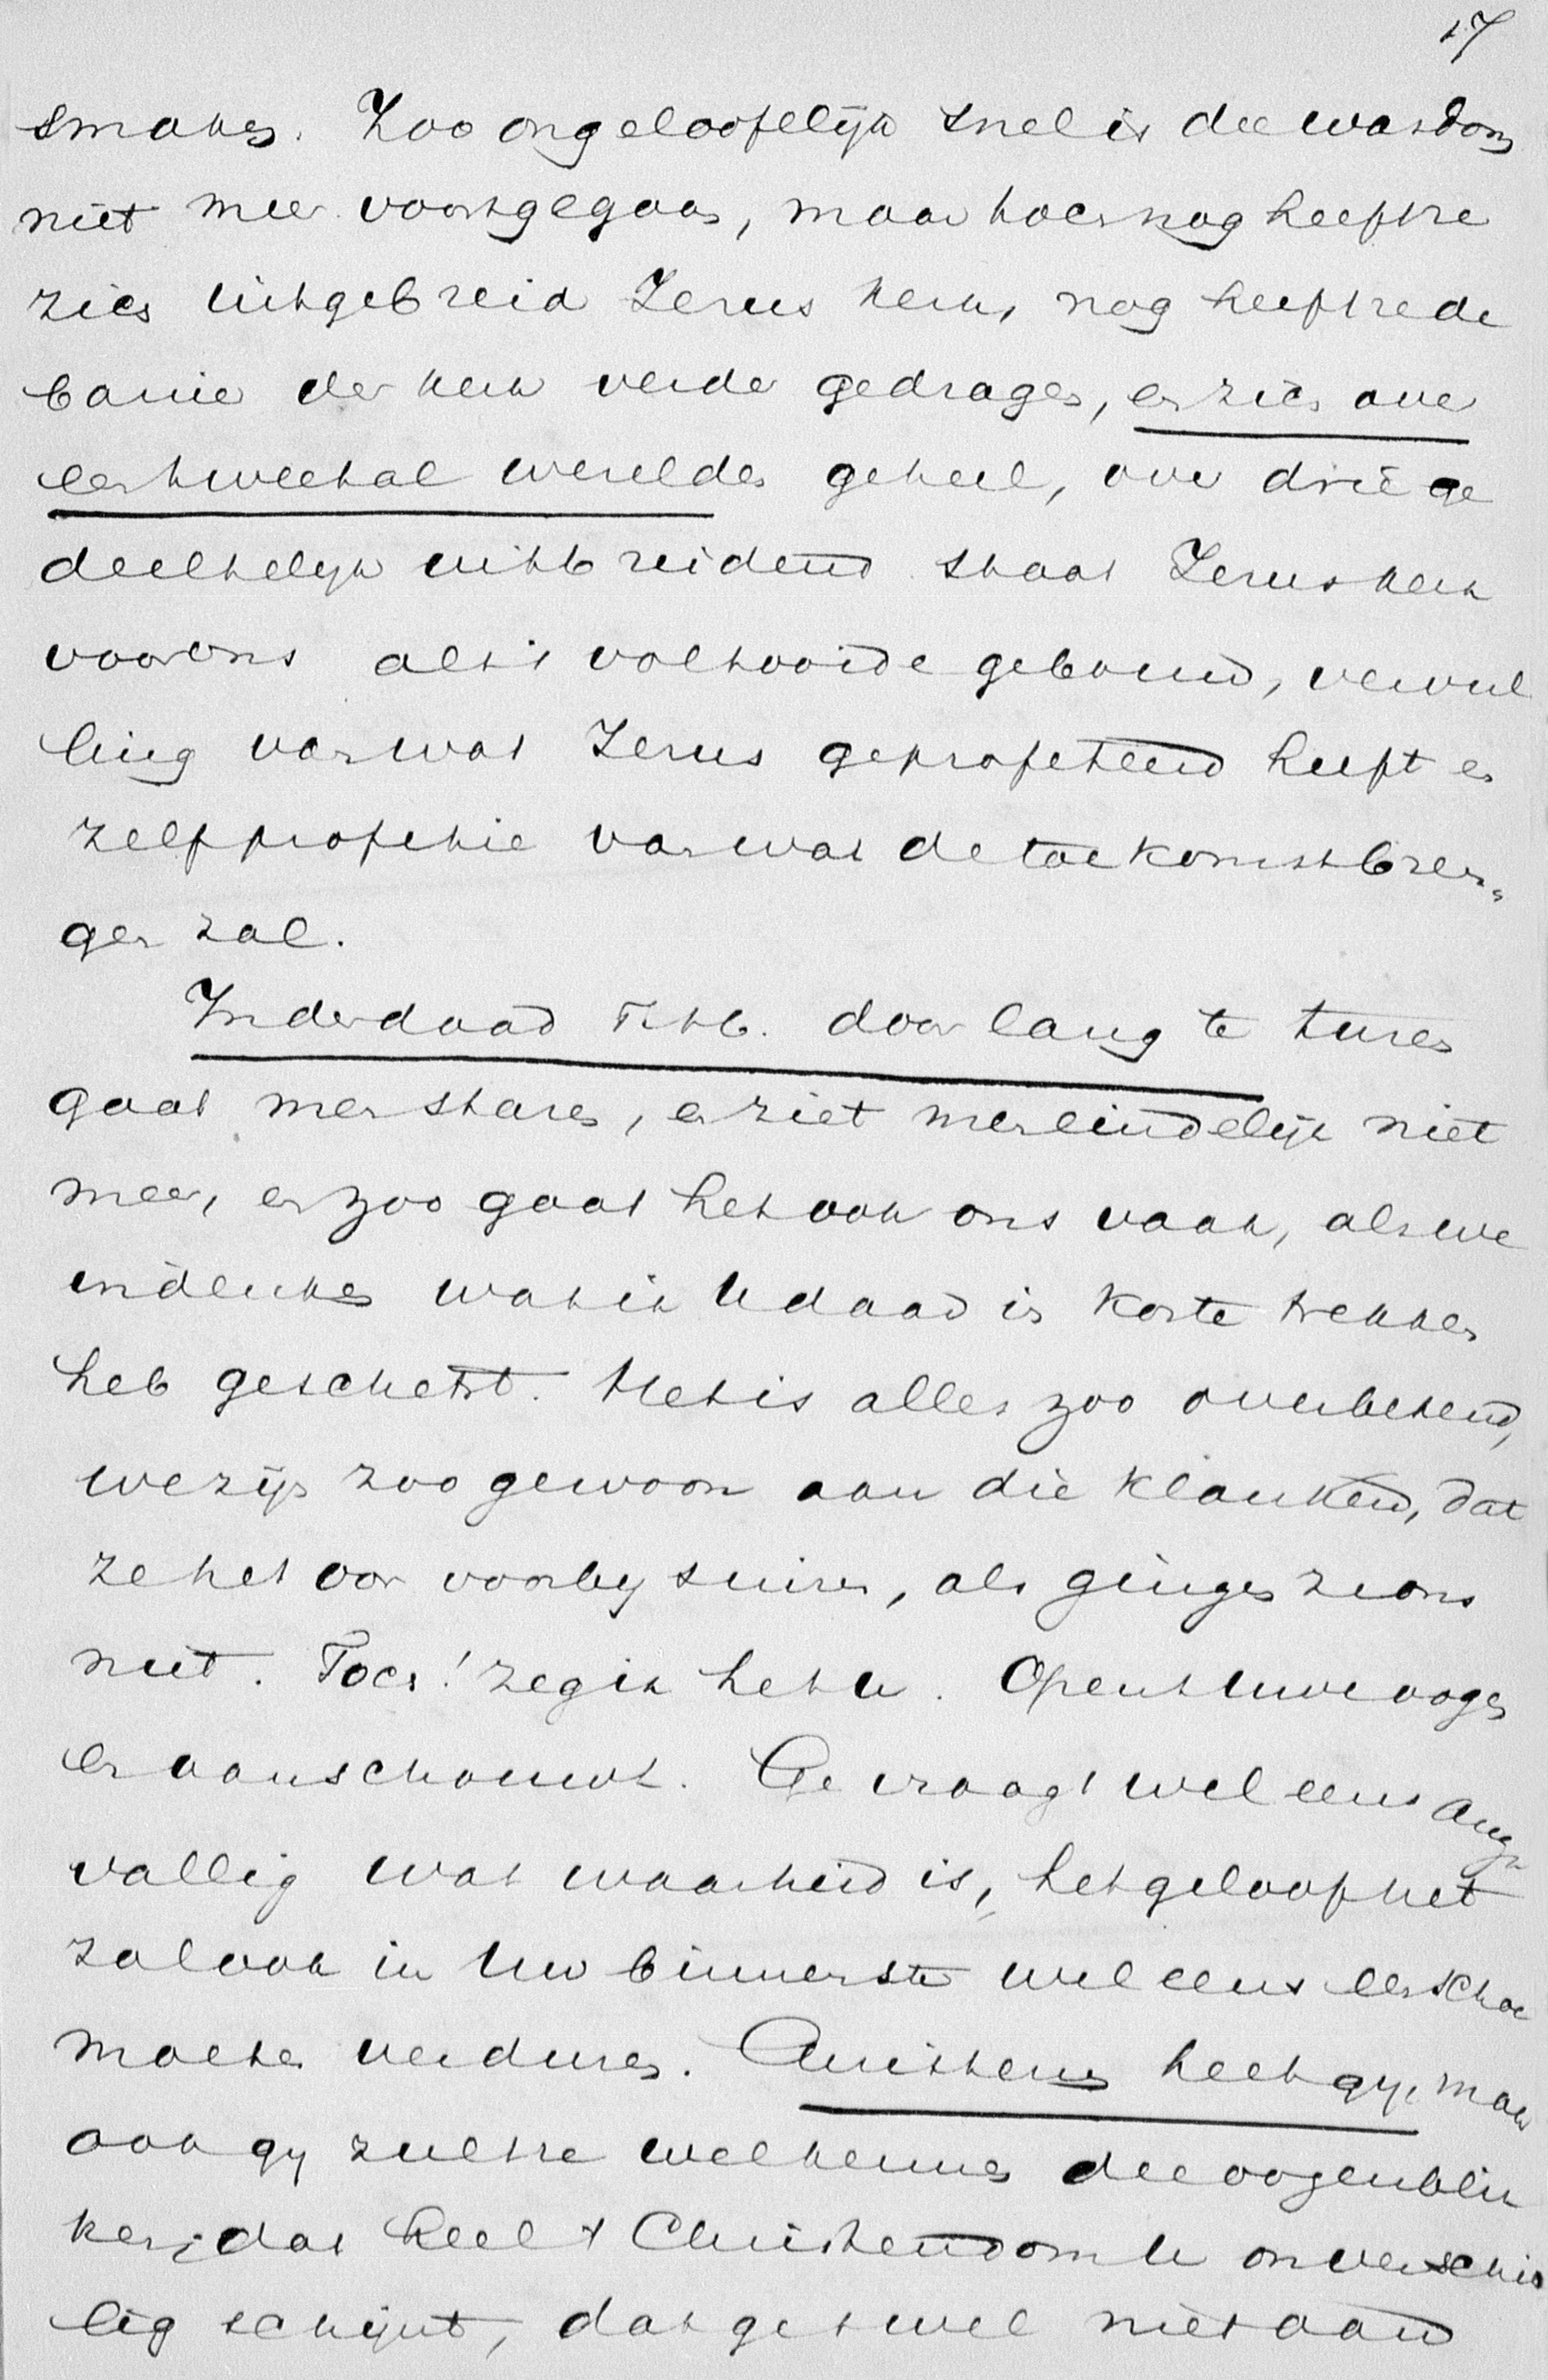 17
smaken. Zoo ongelooflijk snel is die wasdom
niet meer voortgegaan, maar toch nog heeft ze
zich uitgebreid Jezus kerk, nog heeft ze de
banier der kerk verder gedragen, en zich over
een tweetal werelden geheel, over drie ge
deeltelijk uitbreidend staat Jezus kerk
voor ons als 't voltooide gebouw, vervul
ling van wat Jezus geprofeteerd heeft en
zelf profetie van wat de toekomst bren„
gen zal.
Inderdaad M.H. door lang te turen
gaat men staren, en ziet men eindelijk niet
meer, en zoo gaat het ook ons vaak, als we
indenken wat ik U daar in korte trekken
heb geschetst. Het is alles zoo overbekend,
we zijn zoo gewoon aan die klanken, dat
ze het oor voorbij suizen, als gingen ze ons
niet. Toch! zeg ik het U. Opent Uwe oogen
en aanschouwt. Ge vraagt wel eens angst
vallig wat waarheid is, het geloof het
zal ook in Uw binnenste wel eens een schok
moeten verduren. Christenen heet gij, maar
ook gij zult ze wel kennen die oogenblik
ken, dat heel 't Christendom U onverschil
lig schijnt, dat ge 't wel niet aan